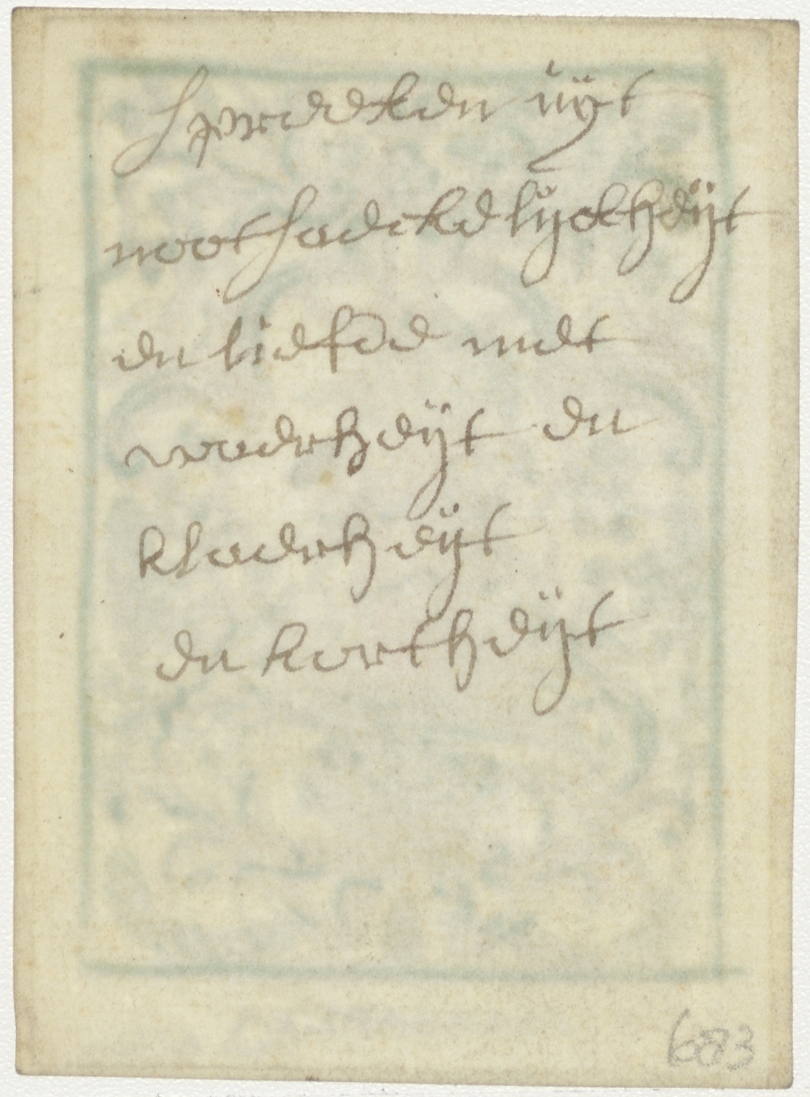 spreeken uÿt
nootsaeckelÿckheÿt
en liefde met
waerheÿt en
klaerheÿt
en kortheÿt
683